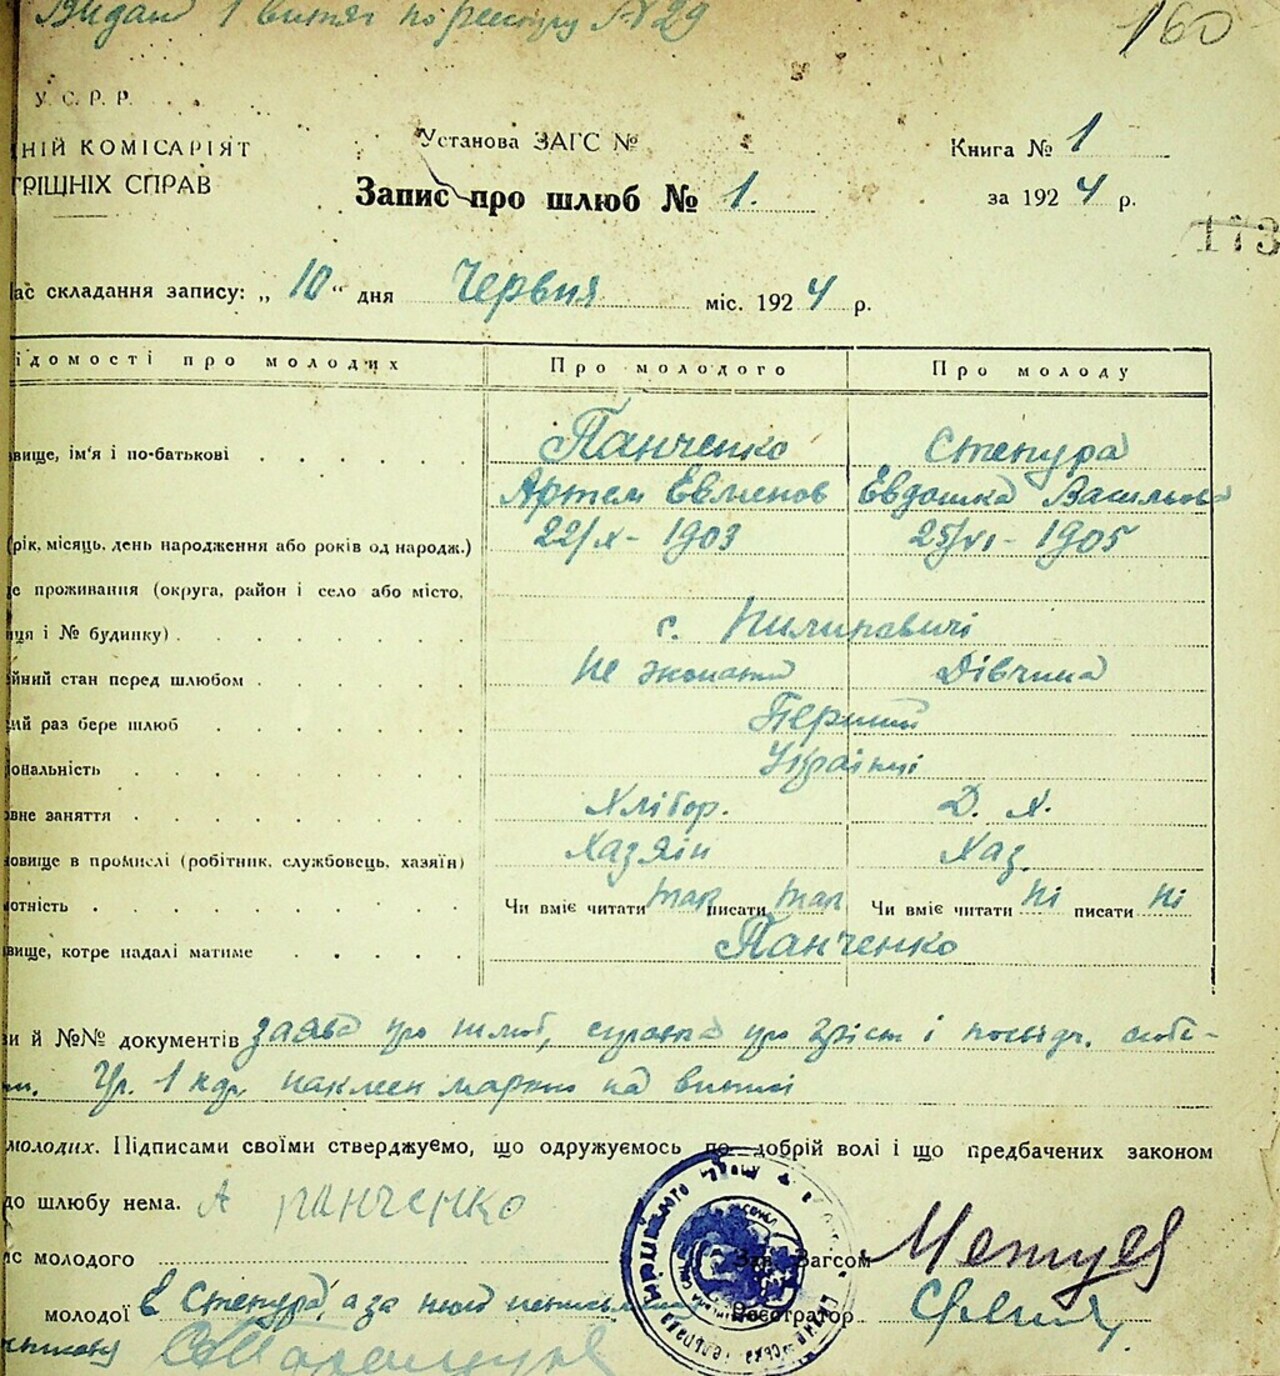 Видан 1 витяг по реєстру № 29
160
У. С. Р. Р.
НІЙ КОМІСАРІЯТ
ТРІШНІХ СПРАВ
Установа ЗАГС №
Книга № 1
Запис про шлюб № 1.
за 1924 р.
173
ас складання запису: „10“ дня Червня міс. 1924 р.
ідомості про молодих Про молодого Про молоду
вище, ім'я і по-батькові Панченко Степура
Артем Евменов Евдошка Васильова
рік, місяць, день народження або років од народж.) 22/X - 1903 25/VI - 1905
е проживання (округа, район і село або місто,
ця і № будинку) с. Пилиповичі
йний стан перед шлюбом Не жонатий Дівчина
ий раз бере шлюб Перший
ональність Українці
вне заняття Хлібор. Д. Х.
овище в промислі (робітник, службовець, хазяїн) Хазяїн Хаз.
отність Чи вміє читати так писати так Чи вміє читати ні писати ні
вище, котре надалі матиме Панченко
ви й №№ документів заява про шлюб, справка про зріст і посвідч. особи-
1 на
молодих. Підписами своїми стверджуємо, що одружуємось по добрій волі і що предбачених законом
до шлюбу нема. А Панченко
ис молодого
Зав. Загсом
молодої Е Степура, а за неї неписьменну
Реєстратор